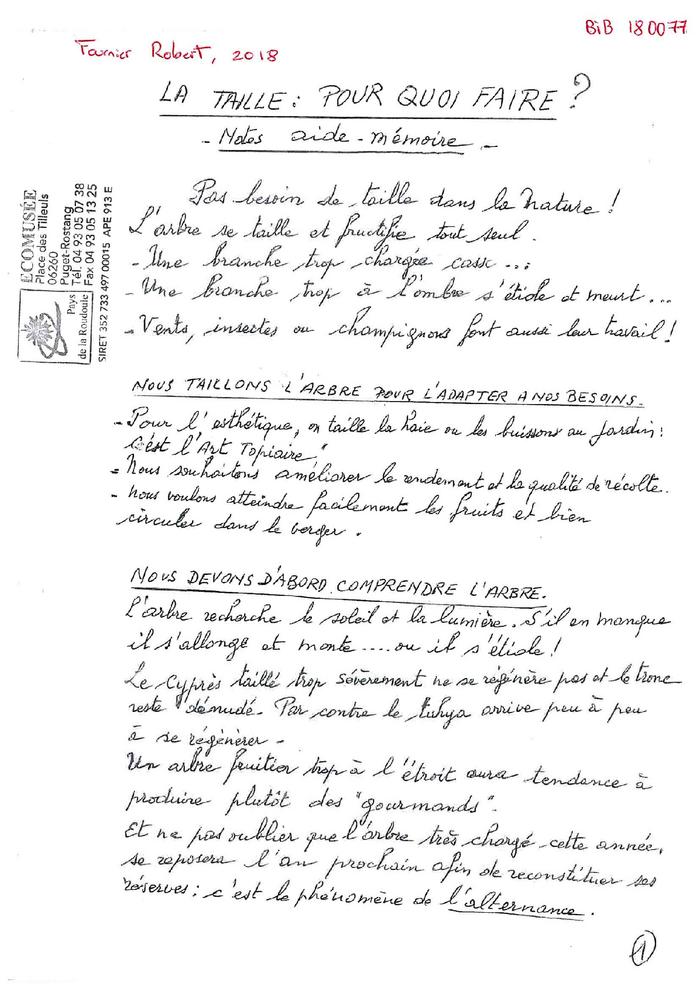 BiB 180077
Fournier Robert, 2018
LA TAILLE : POUR QUOI FAIRE ?
- Notes aide-mémoire -
ECOMUSÉE
Place des Tilleuls
06260
Puget-Rostang
Tél. 04 93 05 07 38
Fax 04 93 05 13 25
SIRET 352 733 497 00015 APE 913 E
Pays
de la Roudoule
Pas besoin de taille dans la nature !
L'arbre se taille et fructifie tout seul.
- Une branche trop chargée casse...
- Une branche trop à l'ombre s'étiole et meurt...
- Vents, insectes ou champignons font aussi leur travail !
NOUS TAILLONS L'ARBRE POUR L'ADAPTER A NOS BESOINS.
- Pour l'esthétique, on taille la haie ou les buissons au jardin :
C'est l'Art Topiaire"
- Nous souhaitons améliorer le rendement et la qualité de récolte.
- Nous voulons atteindre facilement les fruits et bien
circuler dans le verger.
NOUS DEVONS D'ABORD COMPRENDRE L'ARBRE.
L'arbre recherche le soleil et la lumière. S'il en manque
il s'allonge et monte.... ou il s'étiole !
Le Cyprès taillé trop sévèrement ne se régénère pas et le tronc
reste dénudé. Par contre le tuhya arrive peu à peu
à se régénérer -
Un arbre fruitier trop à l'étroit aura tendance à
produire plutôt des "gourmands".
Et ne pas oublier que l'arbre très chargé cette année,
se reposera l'an prochain afin de reconstituer ses
réserves : c'est le phénomène de l'alternance.
1